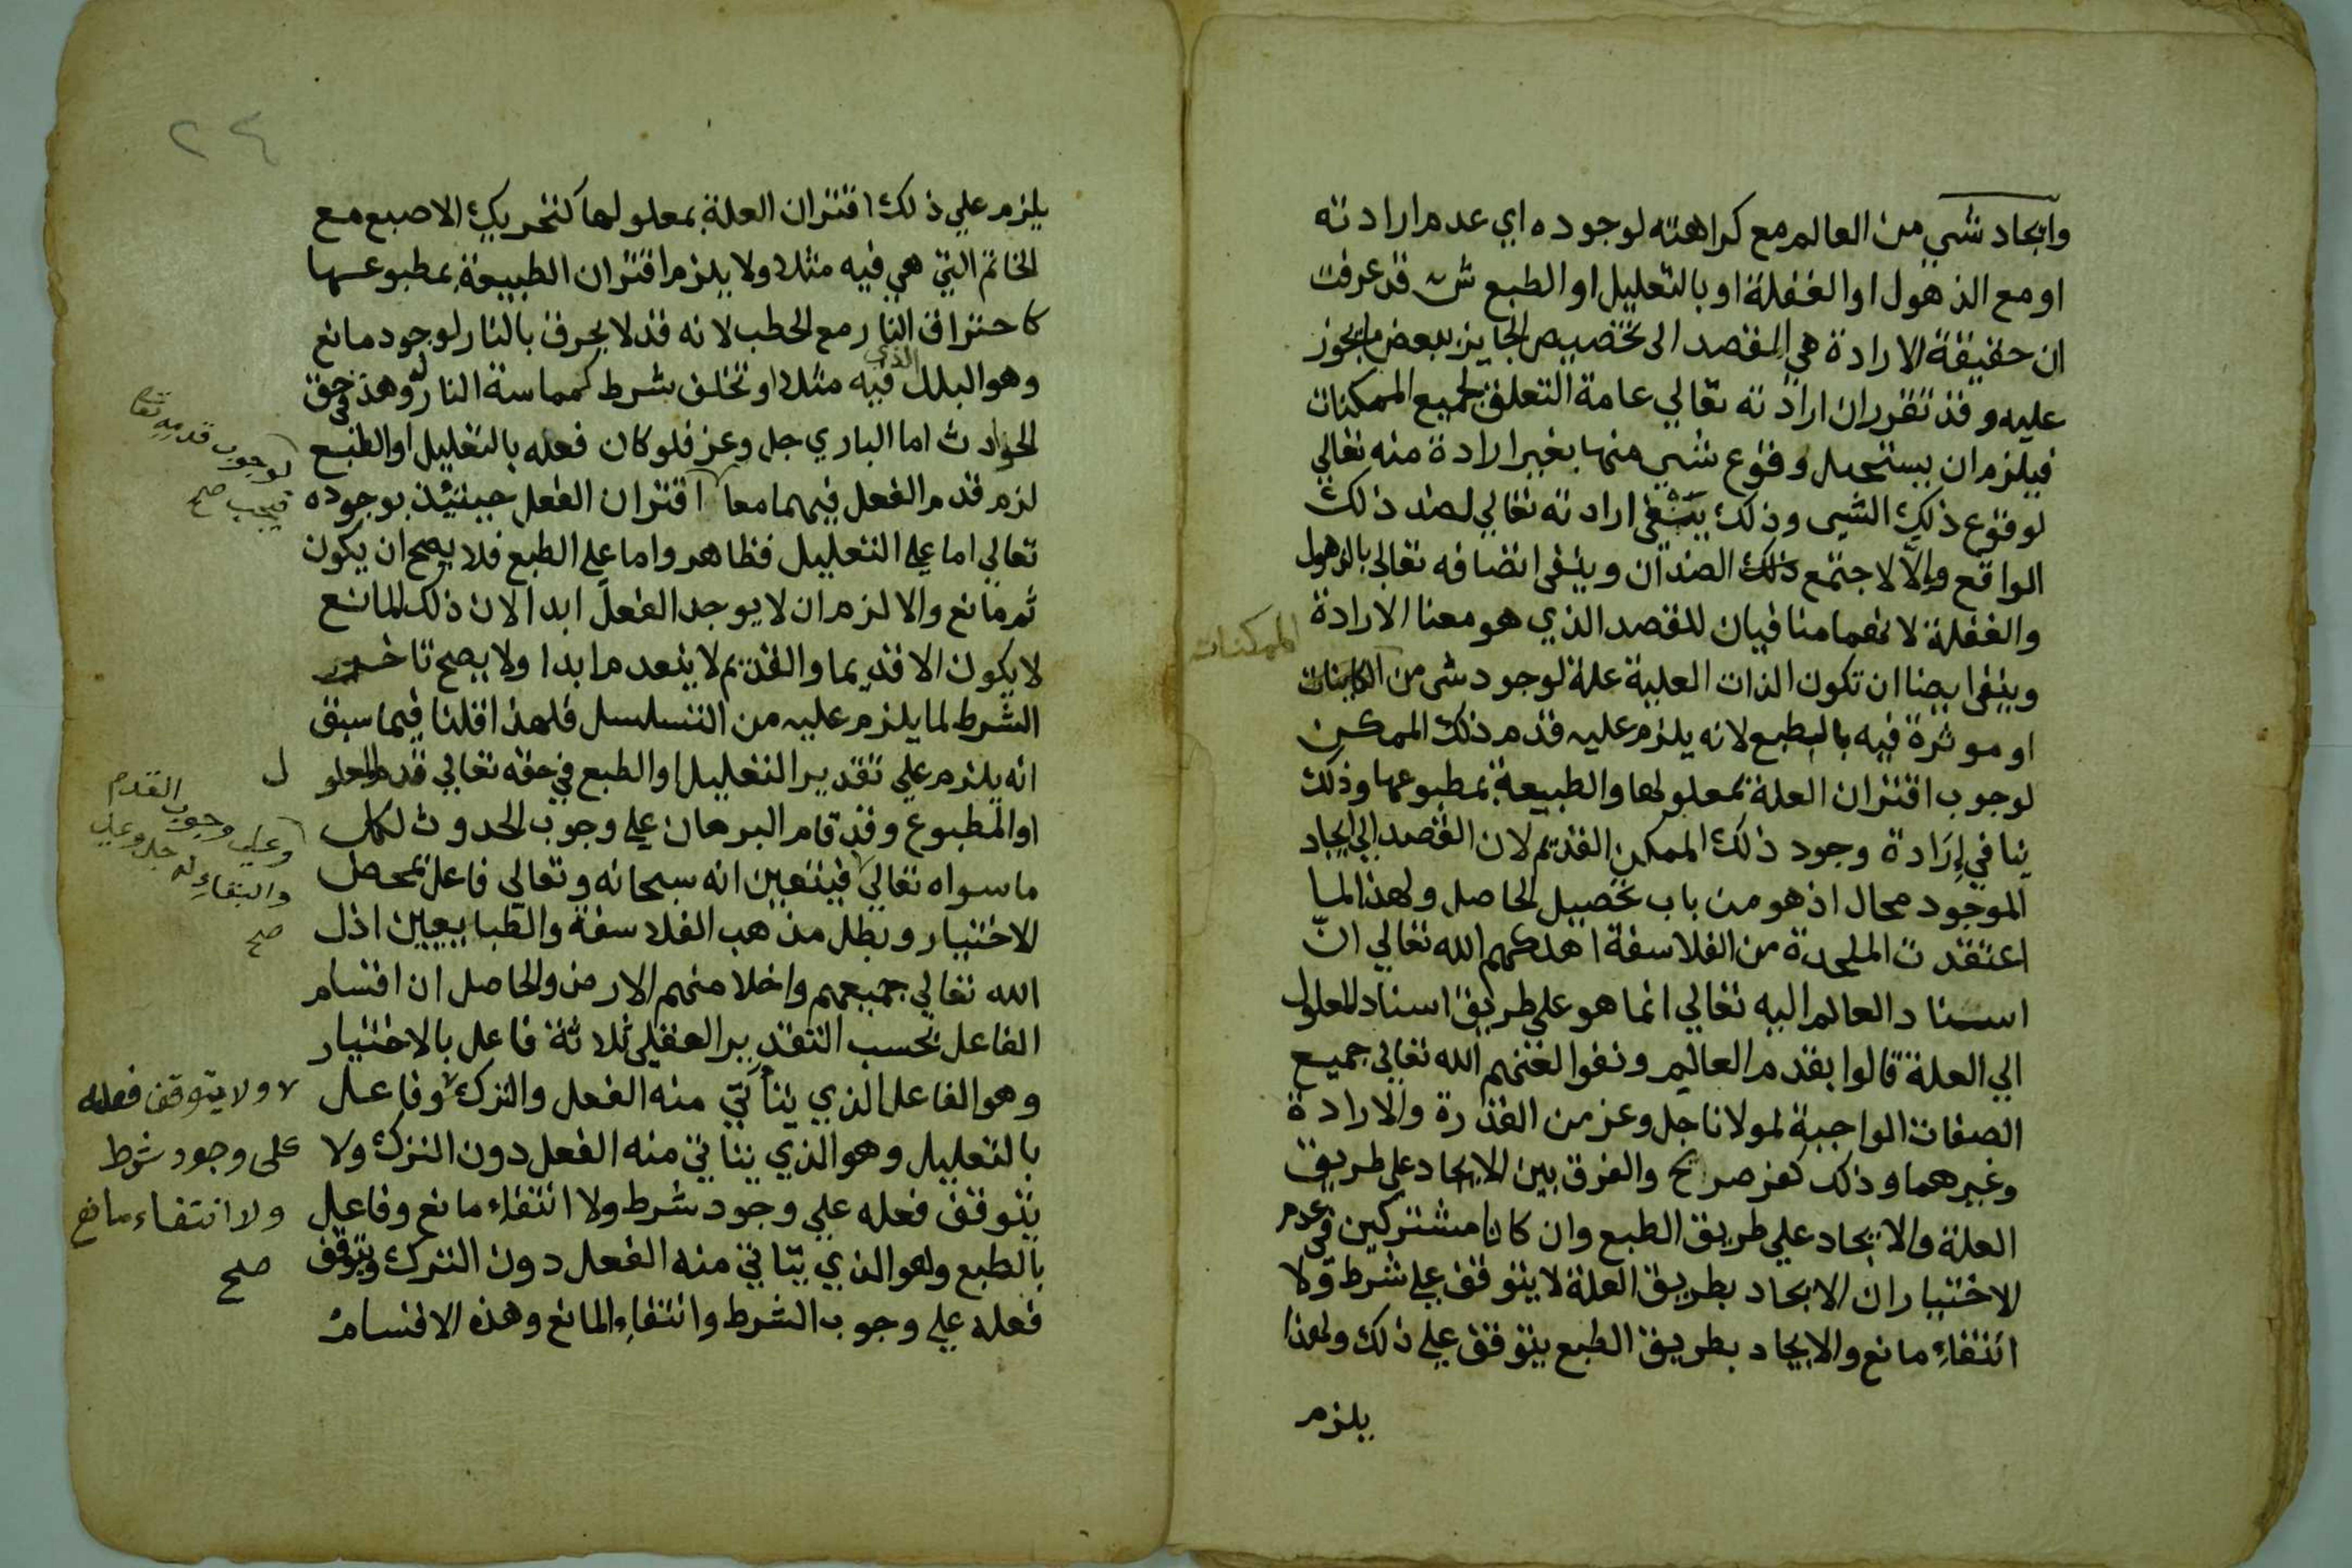 وايجاد شي من العالم مع كراهته لوجوده اي عدم ارادته
او مع الذهول او الغفلة او بالتعليل او الطبع ش قد عرفت
ان حقيقة الارادة هي القصد الى تخصيص الجايز ببعض ما يجوز
عليه وقد تقرر ان ارادته تعالي عامة التعلق لجميع الممكنات
فيلزم ان يستحيل وقوع شي منها بغير ارادة منه تعالي
لوقوع ذلك الشي وذلك ينفي ارادته تعالي لضد ذلك
الواقع وإلاّ لاجتمع ذلك الضدان وينفى اتصافه تعالى بالذهول
والغفلة لانهما منافيان للقصد الذي هو معنا الارادة
وينفى ايضا ان تكون الذات العلية علة لوجود شى من الكاينات
الممكنات
او موثرة فيه بالطبع لانه يلزم عليه قدم ذلك الممكن
لوجوب اقتران العلة بمعلولها والطبيعة بمطبوعها وذلك
ينافي إرَادة وجود ذلك الممكن القديم لان القصد الي ايجاد
الموجود محال اذ هو من باب تحصيل الحاصل ولهذا لما
اعتقدت الملحدة من الفلاسفة اهلكهم الله تعالي انّ
اسناد العالم اليه تعالي انما هو علي طريق اسناد المعلول
الي العلة قالوا بقدم العالم ونفوا لعنهم الله تعالى جميع
الصفات الواجبة لمولانا جل وعز من القدرة والارادة
وغيرهما وذلك كفر صريح والفرق بين الايجاد على طريق
العلة والايجاد علي طريق الطبع وان كانا مشتركين في عدم
الاختيار ان الايجاد بطريق العلة لا يتوقف علي شرط ولا
انتفاءِ مانع والايجاد بطريق الطبع يتوقف علي ذلك ولهذا
يلزم
٢٤
يلزم علي ذلك اقتران العلة بمعلولها كتحريك الاصبع مع
الخاتم التي هي فيه مثلا ولا يلزم اقتران الطبيعة بمطبوعها
كاحتراق النار مع الحطب لانه قد لا يحرق بالنار لوجود مانع
وهو البلل الذي فيه مثلا او تخلف شرط كمماسة النار له وهذا في حق
الحوادث اما الباري جل وعز فلو كان فعله بالتعليل او الطبع
لزم قدم الفعل فيهما معا اقتران الفعل حينئذ بوجوده
لوجوب قدمه تعالى
فيجب صح
تعالي اما على التعليل فظاهر واما على الطبع فلا يصح ان يكون
ثم مانع والا لزم ان لا يوجد الفعل ابدا لان ذلك المانع
لا يكون الا قديما والقديم لا ينعدم ابدا ولا يصح تاخير
الشرط لما يلزم عليه من التسلسل فلهذا قلنا فيما سبق
انه يلزم علي تقدير التعليل او الطبع في حقه تعالي قدم المعلو ل
او المطبوع وقد قام البرهان على وجوب الحدوث لكل
ما سواه تعالي فيتعين انه سبحانه وتعالي فاعل بمحض
وعلي وجوب القدم
والبقاءِ له جل وعلي
صح
الاختيار وبطل مذهب الفلاسفة والطبايعيين اذل
الله تعالي جميعهم واخلا منهم الارض والحاصل ان اقسام
الفاعل بحسب التقدير العقلي ثلاثة فاعل بالاختيار
وهو الفاعل الذي يتأتي منه الفعل والترك وفاعل
ولا يتوقف فعله
على وجود شرط
ولا انتفاء مانع
صح
بالتعليل وهو الذي يتاتي منه الفعل دون الترك ولا
يتوقف فعله علي وجود شرط ولا انتفاءِ مانع وفاعل
بالطبع وهو الذي يتاتي منه الفعل دون الترك ويتوقف
فعله على وجوب الشرط وانتفاءِ المانع وهذه الاقسام